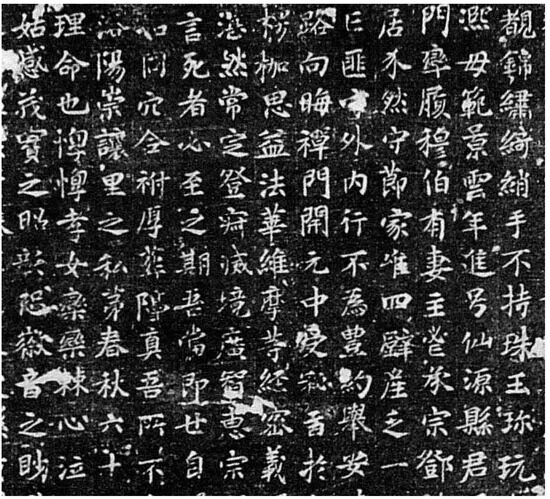 觀錦繡綺綃手不持珠玉珎玩
凞母範景雲年進号仙源縣君
門率履穆伯有妻主鬯承宗鄧
居不然守節家唯四壁産乏一
曰匪中外内行不為豊約舉安
路向晦禪門開元中受秘旨於
楞枷思益法華維摩等經密義
湛然常定登寂滅境廣智惠宗
言死者必至之期吾當即世自
如同穴合祔厚葬隳真吾所不
洛陽崇讓里之私第春秋六十
理命也惸惸孝女欒欒棘心泣
姑感茂實之昭彰恐徽音之眇